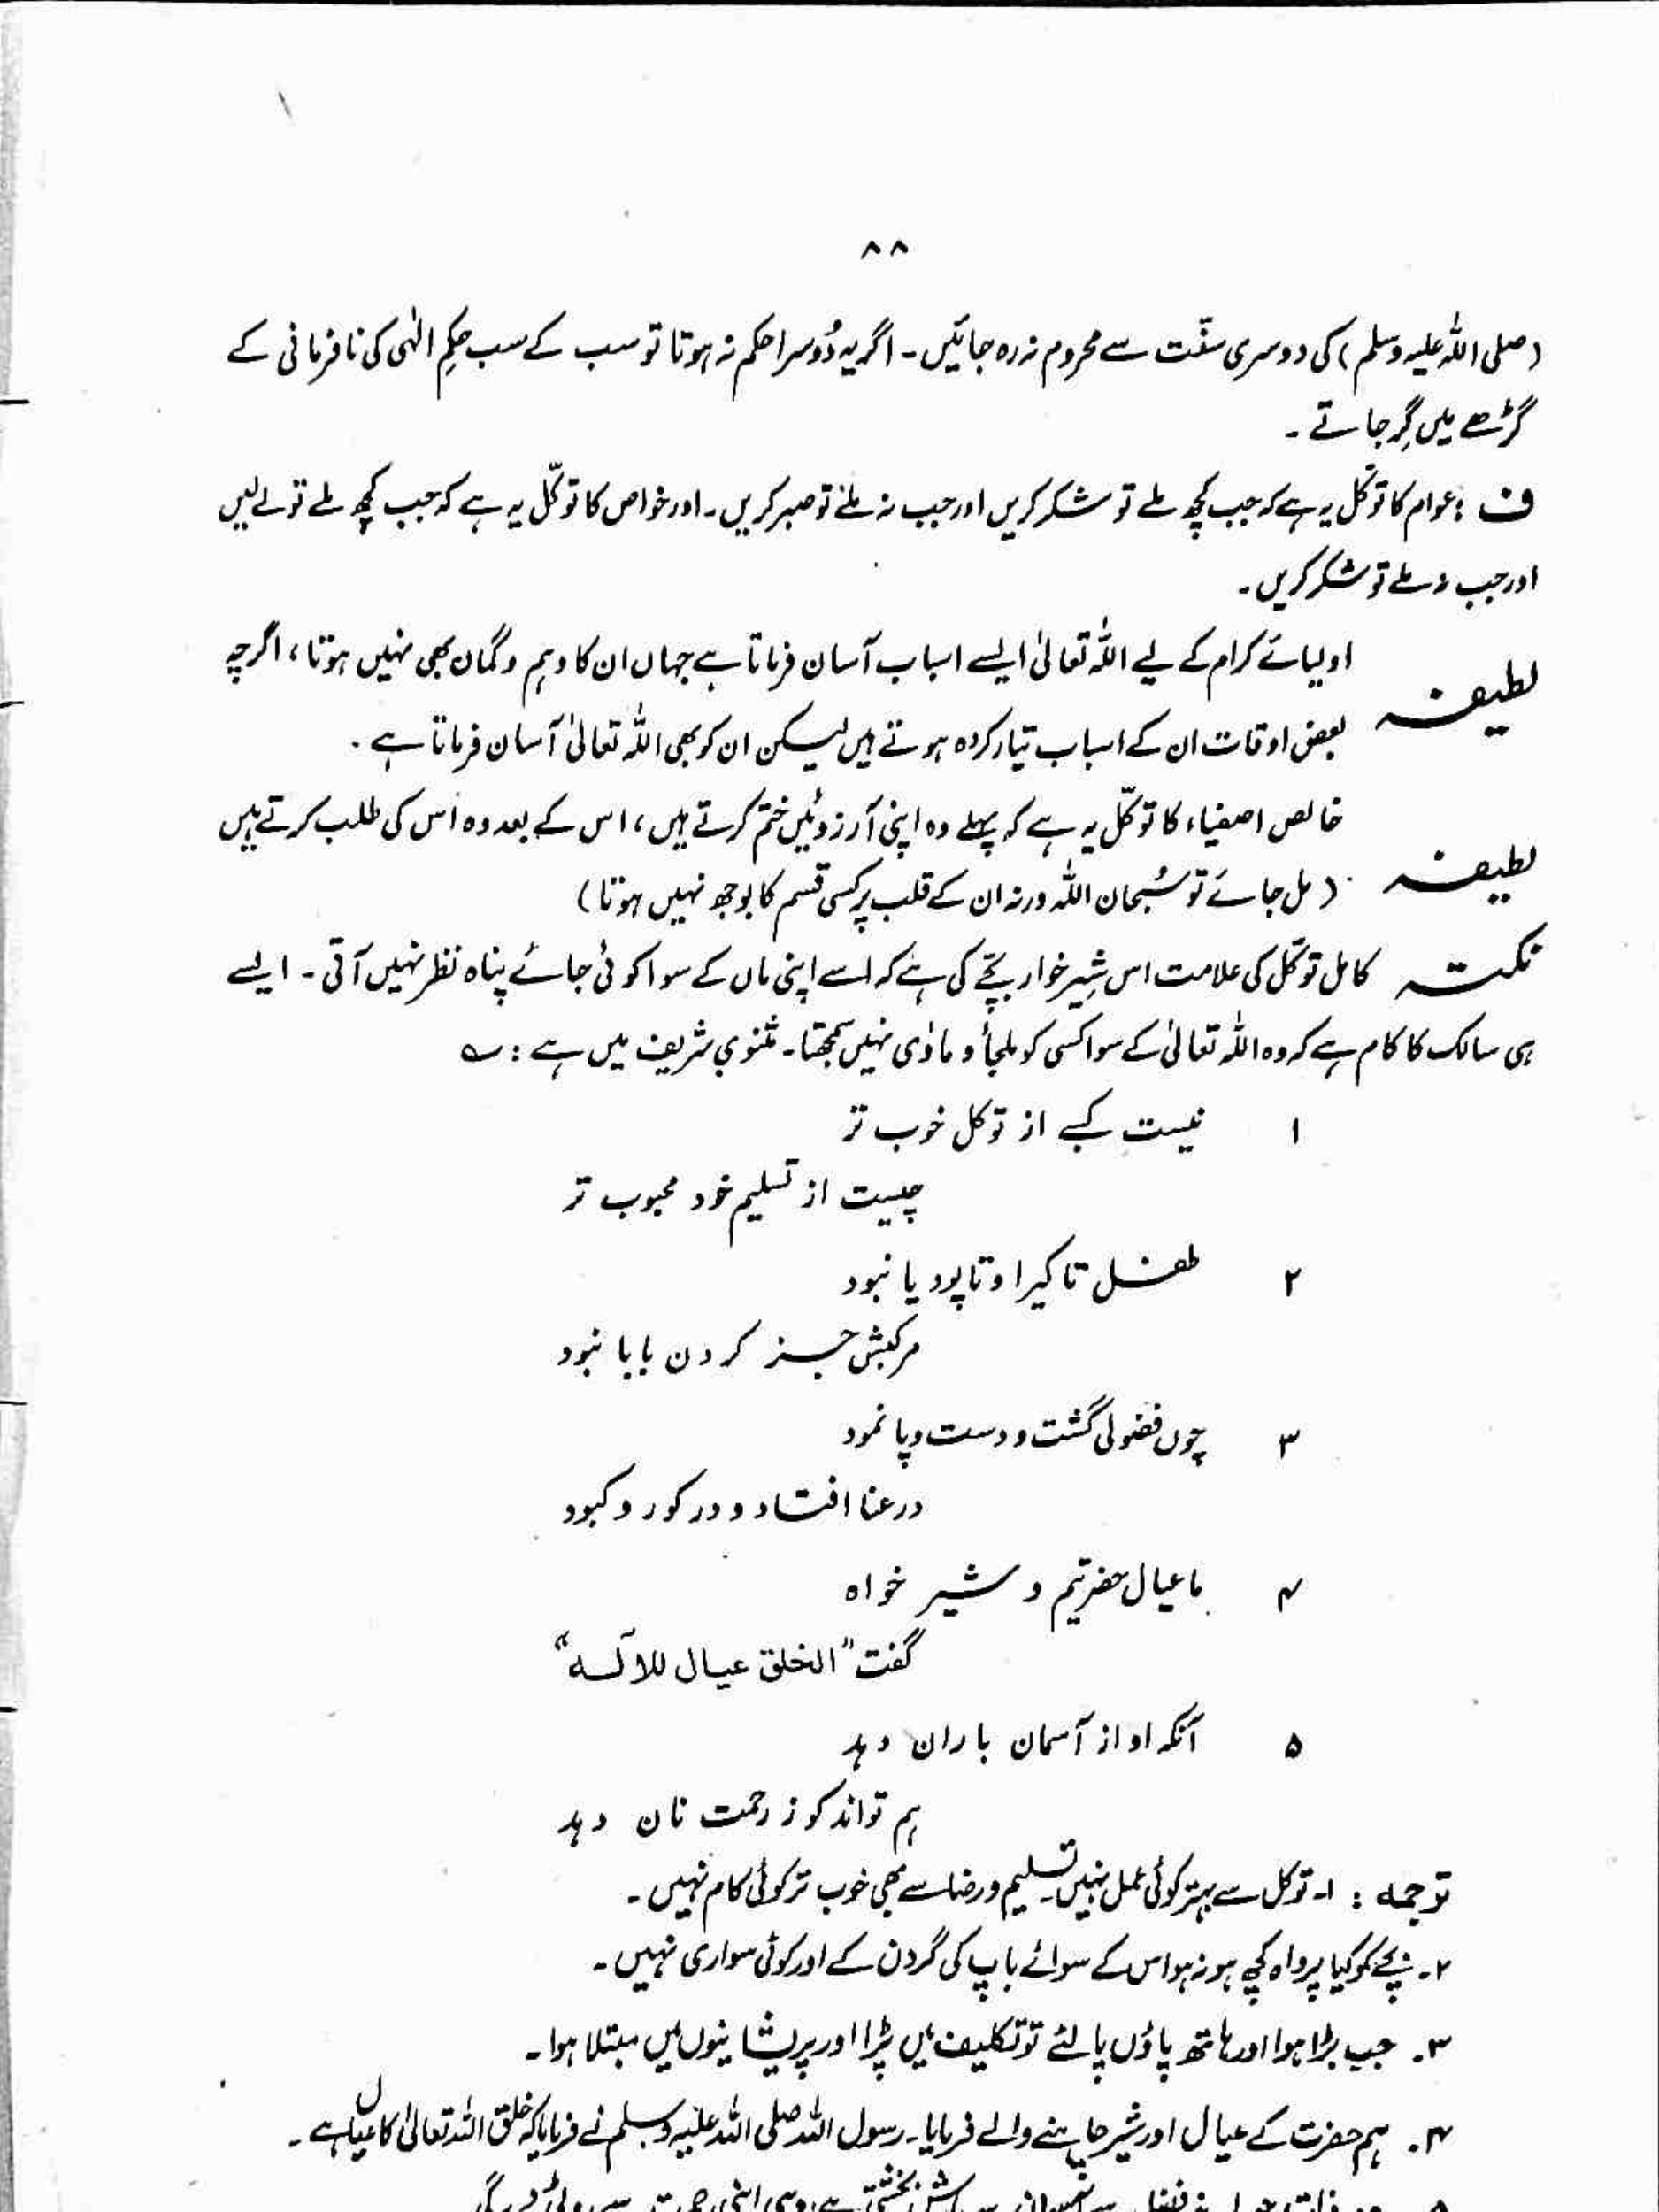 ۸۸
(صلی اللہ علیہ وسلم) کی دوسری سنّت سے محروم نہ رہ جائیں۔ اگر یہ دُوسرا حکم نہ ہوتا تو سب کے سب حکمِ الٰہی کی نافرمانی کے
گڑھے میں گِر جاتے۔
ف : عوام کا توکّل یہ ہے کہ جب کچھ ملے تو شکر کریں اور جب نہ ملے تو صبر کریں۔ اور خواص کا توکّل یہ ہے کہ جب کچھ ملے تو لے لیں
اور جب نہ ملے تو شکر کریں۔
لطیفہ اولیائے کرام کے لیے اللہ تعالیٰ ایسے اسباب آسان فرماتا ہے جہاں ان کا وہم و گمان بھی نہیں ہوتا، اگرچہ
بعض اوقات ان کے اسباب تیار کردہ ہوتے ہیں لیکن ان کو بھی اللہ تعالیٰ آسان فرماتا ہے۔
لطیفہ خالص اصفیاء کا توکّل یہ ہے کہ پہلے وہ اپنی آرزوئیں ختم کرتے ہیں، اس کے بعد وہ اُس کی طلب کرتے ہیں
(مل جائے تو سُبحان اللہ ورنہ ان کے قلب پر کسی قسم کا بوجھ نہیں ہوتا)
نکتہ کامل توکّل کی علامت اس شِیر خوار بچّے کی ہے کہ اسے اپنی ماں کے سوا کوئی جائے پناہ نظر نہیں آتی۔ ایسے
ہی سالک کا کام ہے کہ وہ اللہ تعالیٰ کے سوا کسی کو ملجأ و ماوٰی نہیں سمجھتا۔ مثنوی شریف میں ہے : ؎
۱ نیست کسبے از توکل خوب تر
چیست از تسلیم خود محبوب تر
۲ طفل تا گیرا و تا پود یا نبود
مرکبش جز گردن بابا نبود
۳ چوں فضولی گشت و دست و پا نمود
در عنا افتاد و در کور و کبود
۴ ما عیال حضرتیم و شیر خواہ
گفت "الخلق عیال للالٰہ"
۵ آنکہ او از آسمان باران دہد
ہم تواند کو ز رحمت نان دہد
ترجمہ : ۱۔ توکل سے بہتر کوئی عمل نہیں۔ تسلیم و رضا سے بھی خوب تر کوئی کام نہیں۔
۲۔ بچے کو کیا پرواہ کچھ ہو نہ ہو اس کے سوائے باپ کی گردن کے اور کوئی سواری نہیں۔
۳۔ جب بڑا ہوا اور ہاتھ پاؤں پا لئے تو تکلیف میں پڑا اور پریشانیوں میں مبتلا ہوا۔
۴۔ ہم حضرت کے عیال اور شیر چاہنے والے فرمایا۔ رسول اللہ صلی اللہ علیہ وسلم نے فرمایا کہ خلق اللہ تعالیٰ کا عیال ہے۔